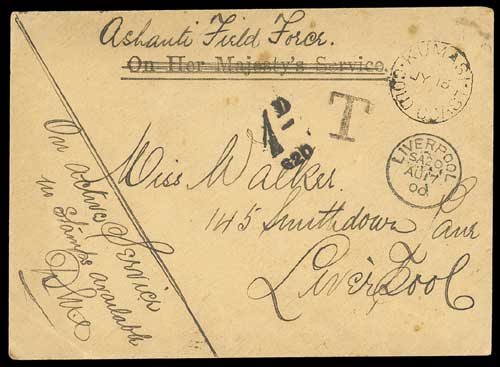 Ashanti Field Force.
On Her Majesty's Service.
KUMASI
JY 18
GOLD COAST
1D
620
T
LIVERPOOL
AU 17
00
Miss Walker.
145 Smithdown Lane
Liverpool
On active Service
no Stamps available